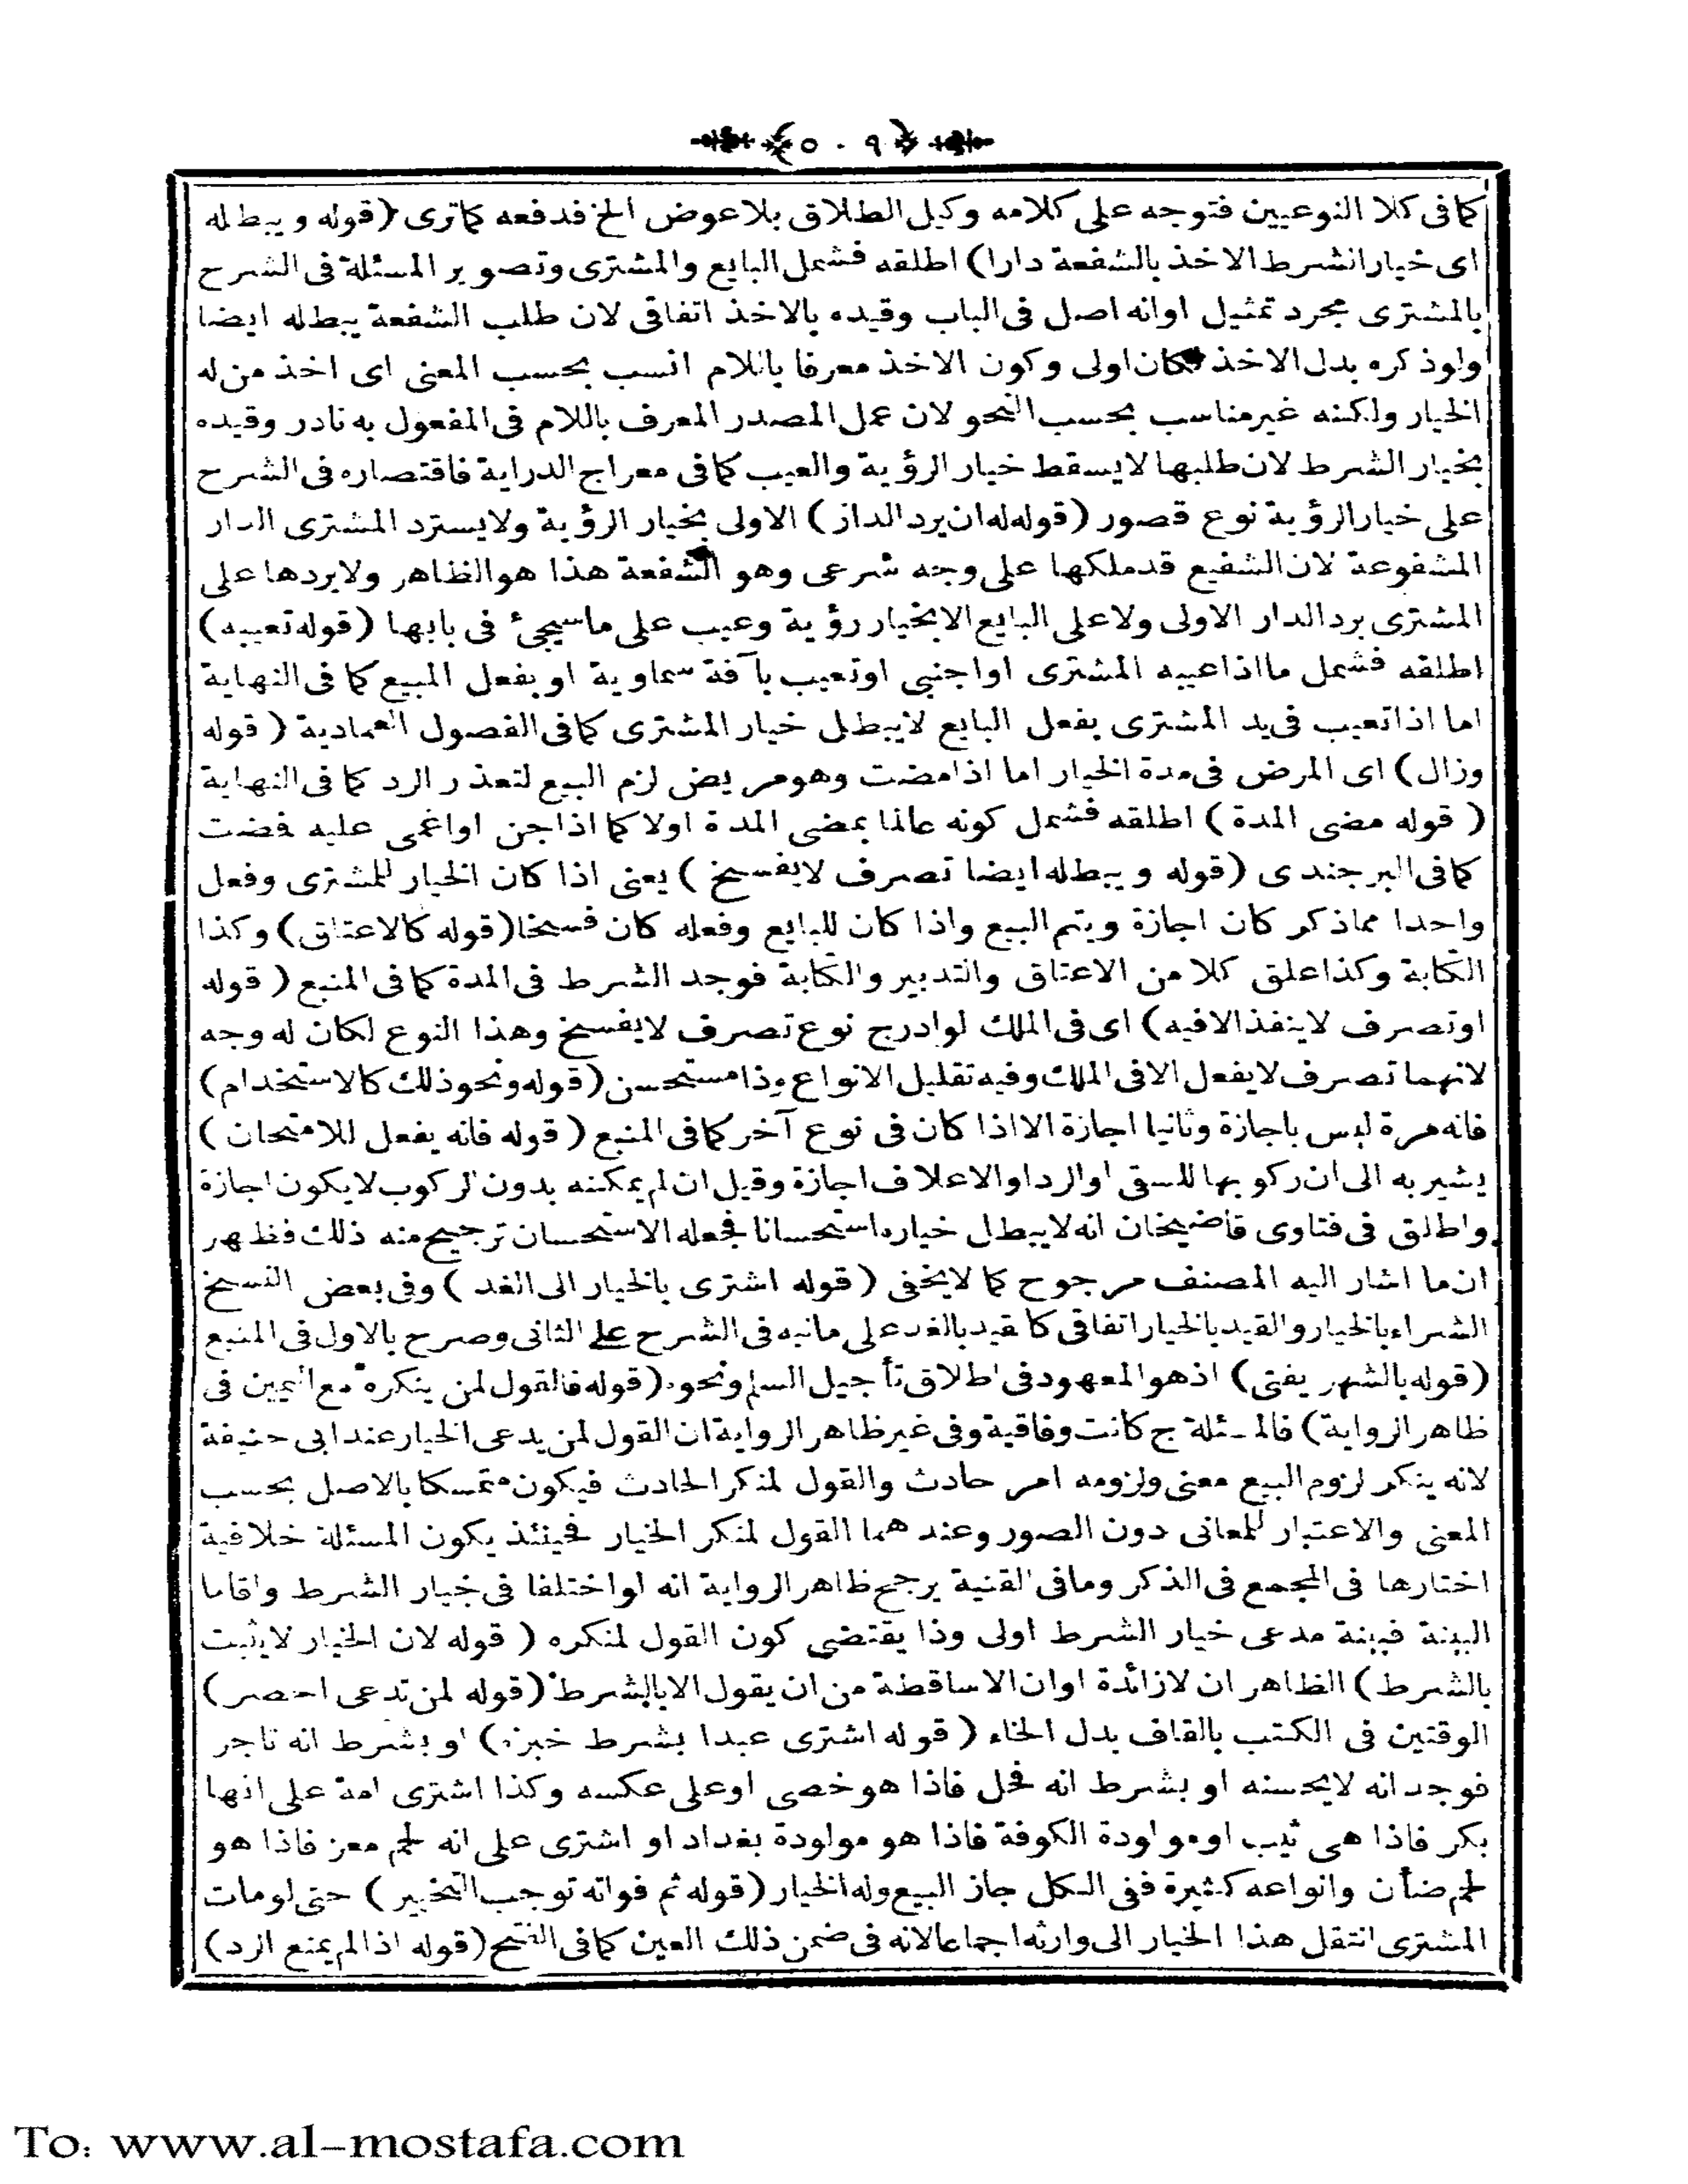 ٥٠٩
كما فى كلا النوعيين فتوجه على كلامه وكيل الطلاق بلا عوض الخ فدفعه كما ترى (قوله ويبطله
اى خيار الشرط الاخذ بالشفعة دارا) اطلقه فشمل البايع والمشترى وتصوير المسئلة فى الشرح
بالمشترى مجرد تمثيل اوانه اصل فى الباب وقيده بالاخذ اتفاقى لان طلب الشفعة يبطله ايضا
ولوذكره بدل الاخذ لكان اولى وكون الاخذ معرفا باللام انسب بحسب المعنى اى اخذ من له
الخيار ولكنه غير مناسب بحسب النحو لان عمل المصدر المعرف باللام فى المفعول به نادر وقيده
بخيار الشرط لان طلبها لا يسقط خيار الرؤية والعيب كما فى معراج الدراية فاقتصاره فى الشرح
على خيار الرؤية نوع قصور (قوله له ان يرد الدار) الاولى بخيار الرؤية ولا يسترد المشترى الدار
المشفوعة لان الشفيع قد ملكها على وجه شرعى وهو الشفعة هذا هو الظاهر ولا يردها على
المشترى برد الدار الاولى ولا على البايع الا بخيار رؤية وعيب على ما سيجئ فى بابها (قوله تعيبه)
اطلقه فشمل ما اذا عيبه المشترى او اجنبى او تعيب بآفة سماوية او بفعل المبيع كما فى النهاية
اما اذا تعيب فى يد المشترى بفعل البايع لا يبطل خيار المشترى كما فى الفصول العمادية (قوله
وزال) اى المرض فى مدة الخيار اما اذا مضت وهو مريض لزم البيع لتعذر الرد كما فى النهاية
(قوله مضى المدة) اطلقه فشمل كونه عالما بمضى المدة اولا كما اذا جن او اغمى عليه فمضت
كما فى البرجندى (قوله ويبطله ايضا تصرف لا يفسخ) يعنى اذا كان الخيار للمشترى وفعل
واحدا مما ذكر كان اجازة ويتم البيع واذا كان للبايع وفعله كان فسخا (قوله كالاعتاق) وكذا
الكتابة وكذا علق كلا من الاعتاق والتدبير والكتابة فوجد الشرط فى المدة كما فى المنبع (قوله
او تصرف لا ينفذ الا فيه) اى فى الملك لو ادرج نوع تصرف لا يفسخ وهذا النوع لكان له وجه
لانهما تصرف لا يفعل الا فى الملك وفيه تقليل الانواع وذا مستحسن (قوله ونحو ذلك كالاستخدام)
فانه مرة ليس باجازة وثانيا اجازة الا اذا كان فى نوع آخر كما فى المنبع (قوله فانه يفعل للامتحان)
يشير به الى ان ركوبها للسقى او الرد او الاعلاف اجازة وقيل ان لم يمكنه بدون الركوب لا يكون اجازة
واطلق فى فتاوى قاضيخان انه لا يبطل خياره استحسانا فجعله الاستحسان ترجيح منه ذلك فظهر
ان ما اشار اليه المصنف مرجوح كما لا يخفى (قوله اشترى بالخيار الى الغد) وفى بعض النسخ
الشراء بالخيار والقيد بالخيار اتفاقى كما قيد بالغد على ما نبه فى الشرح على الثانى وصرح بالاول فى المنبع
(قوله بالشهر يفتى) اذ هو المعهود فى اطلاق تأجيل السلم ونحوه (قوله فالقول لمن ينكره مع اليمين فى
ظاهر الرواية) فالمسئلة ح كانت وفاقية وفى غير ظاهر الرواية ان القول لمن يدعى الخيار عند ابى حنيفة
لانه ينكر لزوم البيع معنى ولزومه امر حادث والقول لمنكر الحادث فيكون متمسكا بالاصل بحسب
المعنى والاعتبار للمعانى دون الصور وعندهما القول لمنكر الخيار فحينئذ يكون المسئلة خلافية
اختارها فى المجمع فى الذكر وما فى القنية يرجح ظاهر الرواية انه لو اختلفا فى خيار الشرط واقاما
البينة فبينة مدعى خيار الشرط اولى وذا يقتضى كون القول لمنكره (قوله لان الخيار لا يثبت
بالشرط) الظاهر ان لا زائدة او ان الا ساقطة من ان يقول الا بالشرط (قوله لمن تدعى احصر)
الوقتين فى الكتب بالقاف بدل الخاء (قوله اشترى عبدا بشرط خبزه) او بشرط انه تاجر
فوجد انه لا يحسنه او بشرط انه فحل فاذا هو خصى او على عكسه وكذا اشترى امة على انها
بكر فاذا هى ثيب او مولودة الكوفة فاذا هو مولودة بغداد او اشترى على انه لحم معز فاذا هو
لحم ضأن وانواعه كثيرة ففى الكل جاز البيع وله الخيار (قوله ثم فواته توجب التخيير) حتى لو مات
المشترى انتقل هذا الخيار الى وارثه اجماعا لانه فى ضمن ذلك العين كما فى الفتح (قوله اذا لم يمنع الرد)
To: www.al-mostafa.com